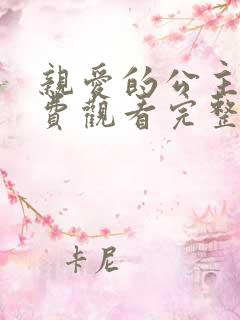 親愛的公主
費觀看完整
卡尼